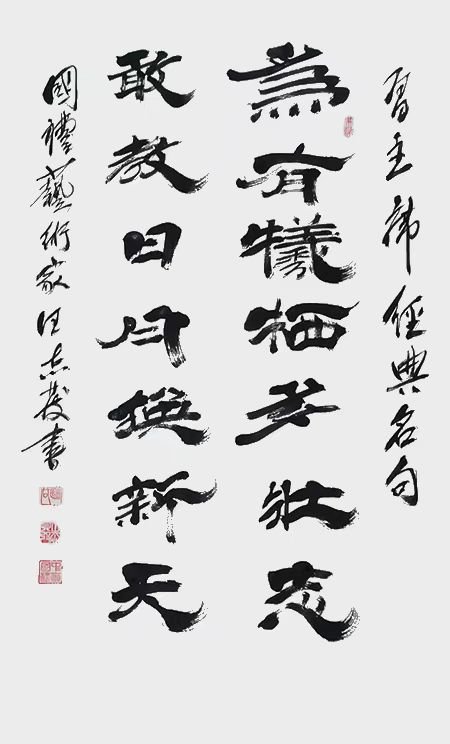 習主席經典名句
為有犧牺多壯志
敢教日月換新天
國禮藝術家汪志發書